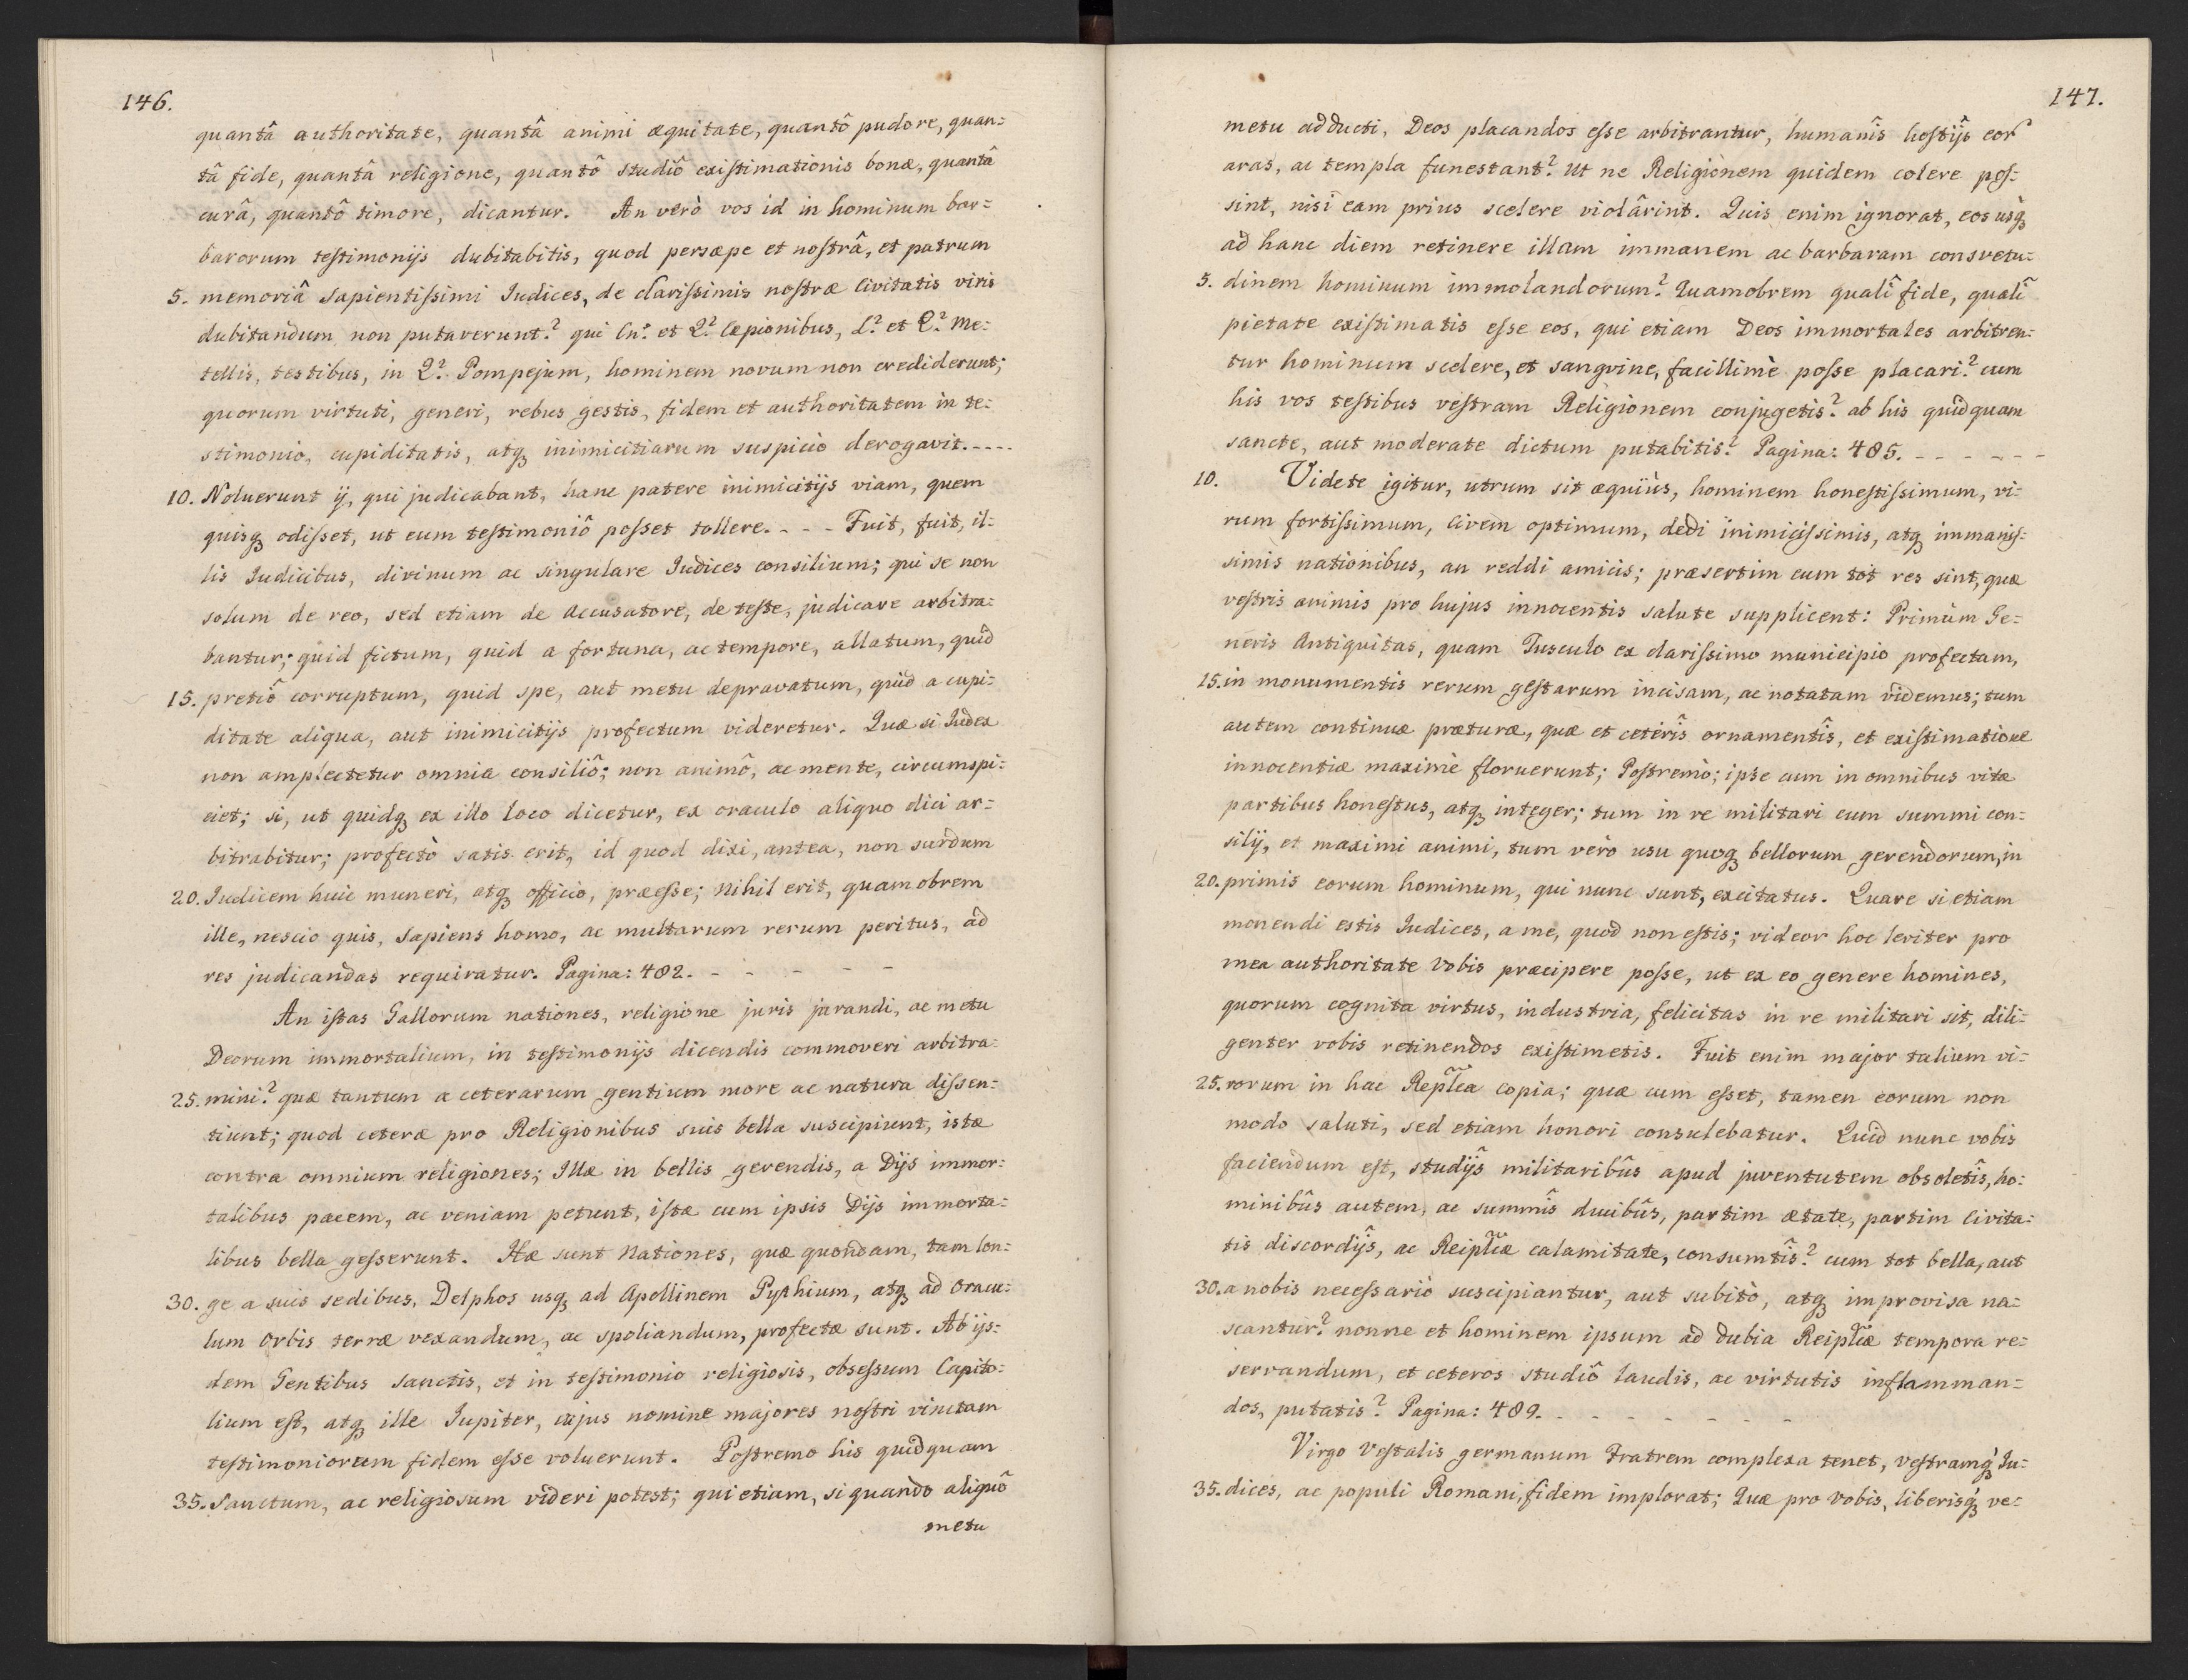 146.
quantâ authoritate, quantâ animi æquitate, quantô pudore, quan=
tâ fide, quantâ religione, quantô studiô existimationis bonæ, quantâ
curâ, quantô timore, dicantur. An verò vos id in hominum bar=
barorum testimonijs dubitabitis, quod persæpe et nostrâ, et patrum
5. memoriâ sapientissimi Iudices, de clarissimis nostræ Civitatis viris
dubitandum non putaverunt? qui Cn: et Q? Cæpionibus, L? et Q? Me=
tellis, testibus, in Q? Pompejum, hominem novum non crediderunt;
quorum virtuti, generi, rebus gestis, fidem et authoritatem in te=
stimonio, cupiditatis, atq; inimicitiarum suspicio derogavit.----
10. Noluerunt ij, qui judicabant, hanc patere inimicitijs viam, quem
quisq; odisset, ut eum testimoniô posset tollere. - - - Fuit, fuit, il=
lis Iudicibus, divinum ac singulare Iudices consilium; qui se non
solum de reo, sed etiam de accusatore, de teste, judicare arbitra=
bantur; quid fictum, quid a fortuna, ac tempore, allatum, quid
15. pretiô corruptum, quid spe, aut metu depravatum, quid a cupi=
ditate aliqua, aut inimicitijs profectum videretur. Quæ si Iudex
non amplectetur omnia consiliô; non animô, ac mente, circumspi=
ciet; si, ut quidq; ex illo loco dicetur, ex oraculo aliquo dici ar=
bitrabitur; profectò satis erit, id quod dixi, antea, non surdum
20. Iudicem huic muneri, atq; officio, præesse; nihil erit, quamobrem
ille, nescio quis, sapiens homo, ac multarum rerum peritus, ad
res judicandas requiratur. Pagina: 482. - - - - -
An istas Gallorum nationes, religione juris jarandi, ac metu
Deorum immortalium, in testimonijs dicendis commoveri arbitra=
25. mini? quæ tantum a ceterarum gentium more ac natura dissen=
tiunt; quod ceteræ pro Religionibus suis bella suscipiunt, istæ
contra omnium religiones; Illæ in bellis gerendis, a Dijs immor=
talibus pacem, ac veniam petunt, istæ cum ipsis Dijs immorta=
libus bella gesserunt. Hæ sunt Nationes, quæ quondam, tam lon=
30. ge a suis sedibus, Delphos usq; ad Apollinem Pythium, atq; ad Oracu=
lum Orbis terræ vexandum, ac spoliandum, profectæ sunt. Ab ijs=
dem Gentibus sanctis, et in testimonio religiosis, obsessum Capito=
lium est, atq; ille Iupiter, cujus nomine majores nostri vinctam
testimoniorum fidem esse voluerunt. Postremo his quidquam
35. Sanctum, ac religiosum videri potest; qui etiam, si quando aliquô
metu
147.
metu adducti, Deos placandos esse arbitrantur, humanîs hostijs eor
aras, ac templa funestant? Ut ne Religionem quidem colere pos=
sint, nisi eam prius scelere violârint. Quis enim ignorat, eos usq;
ad hanc diem retinere illam immanem ac barbaram consvetu=
5. dinem hominum immolandorum? Quamobrem qualî fide, qualî
pietate existimatis esse eos, qui etiam Deos immortales arbitren=
tur hominum scelere, et sangvine, facillimè posse placari? cum
his vos testibus vestram Religionem conjugetis? ab his quidquam
sancte, aut moderate dictum putabitis? Pagina: 485. - - - - - -
10. Videte igitur, utrum sit æquiùs, hominem honestissimum, vi=
rum fortissimum, Civem optimum, dedi inimicissimis, atq; immanis=
simis nationibus, an reddi amicis; præsertim cum tot res sint, quæ
vestris animis pro hujus innocentis salute supplicent: Primùm Ge=
neris Antiquitas, quam Tusculo ex clarissimo municipio profectam,
15. in monumentis rerum gestarum incisam, ac notatam videmus; tum
autem continuæ præturæ, quæ et ceterîs ornamentîs, et existimatione
innocentiæ maximè floruerunt; Postremò; ipse cum in omnibus vitæ
partibus honestus, atq; integer; tum in re militari cum summi con=
silij, et maximi animi, tum verò usu quoq; bellorum gerendorum, in
20. primis eorum hominum, qui nunc sunt, excitatus. Quare si etiam
monendi estis Iudices, a me, quod non estis; videor hoc leviter pro
mea authoritate Vobis præcipere posse, ut ex eo genere homines,
quorum cognita virtus, industria, felicitas in re militari sit, dili=
genter vobis retinendos existimetis. Fuit enim major talium vi=
25. rorum in hac Replca copia; quæ cum esset, tamen eorum non
modo saluti, sed etiam honori consulebatur. Quid nunc vobis
faciendum est, studijs militaribûs apud juventutem obsoletîs, ho=
minibûs autem, ac summîs ducibûs, partim ætate, partim Civita=
tis discordijs, ac Reiplcæ calamitate, consumtîs? cum tot bella, aut
30. a nobis necessariò suscipiantur, aut subitò, atq; improvisa na=
scantur? nonne et hominem ipsum ad dubia Reiplcæ tempora re=
servandum, et ceteros studiô laudis, ac virtutis inflamman=
dos, putatis? Pagina: 489. - - - - - - -
Virgo Vestalis germanum Fratrem complexa tenet, vestramq; Iu=
35. dices, ac populi Romani, fidem implorat; Quæ pro Vobis, liberisq; ve=